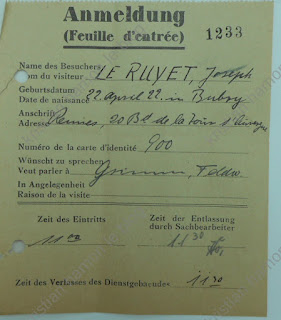 Anmeldung
(Feuille d'entrée) 1233
Name des Besuchers
Nom du visiteur LE RUYET, Joseph
Geburtsdatum
Date de naissance 22. april 22. in Bubry
Anschrift
Adresse Rennes, 20 Bd de la Tour d'Auvergne
Numéro de la carte d'identité 900
Wünscht zu sprechen
Veut parler à Grimm, Feldw.
In Angelegenheit
Raison de la visite
Zeit des Eintritts Zeit der Entlassung
durch Sachbearbeiter
11 00 11 30
Zeit des Verlasses des Dienstgebäudes 11 30